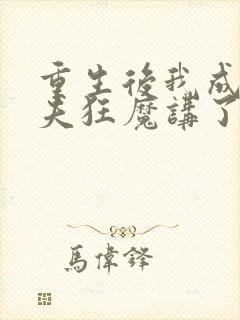 重生後我成
夫狂魔講了
馬偉鋒